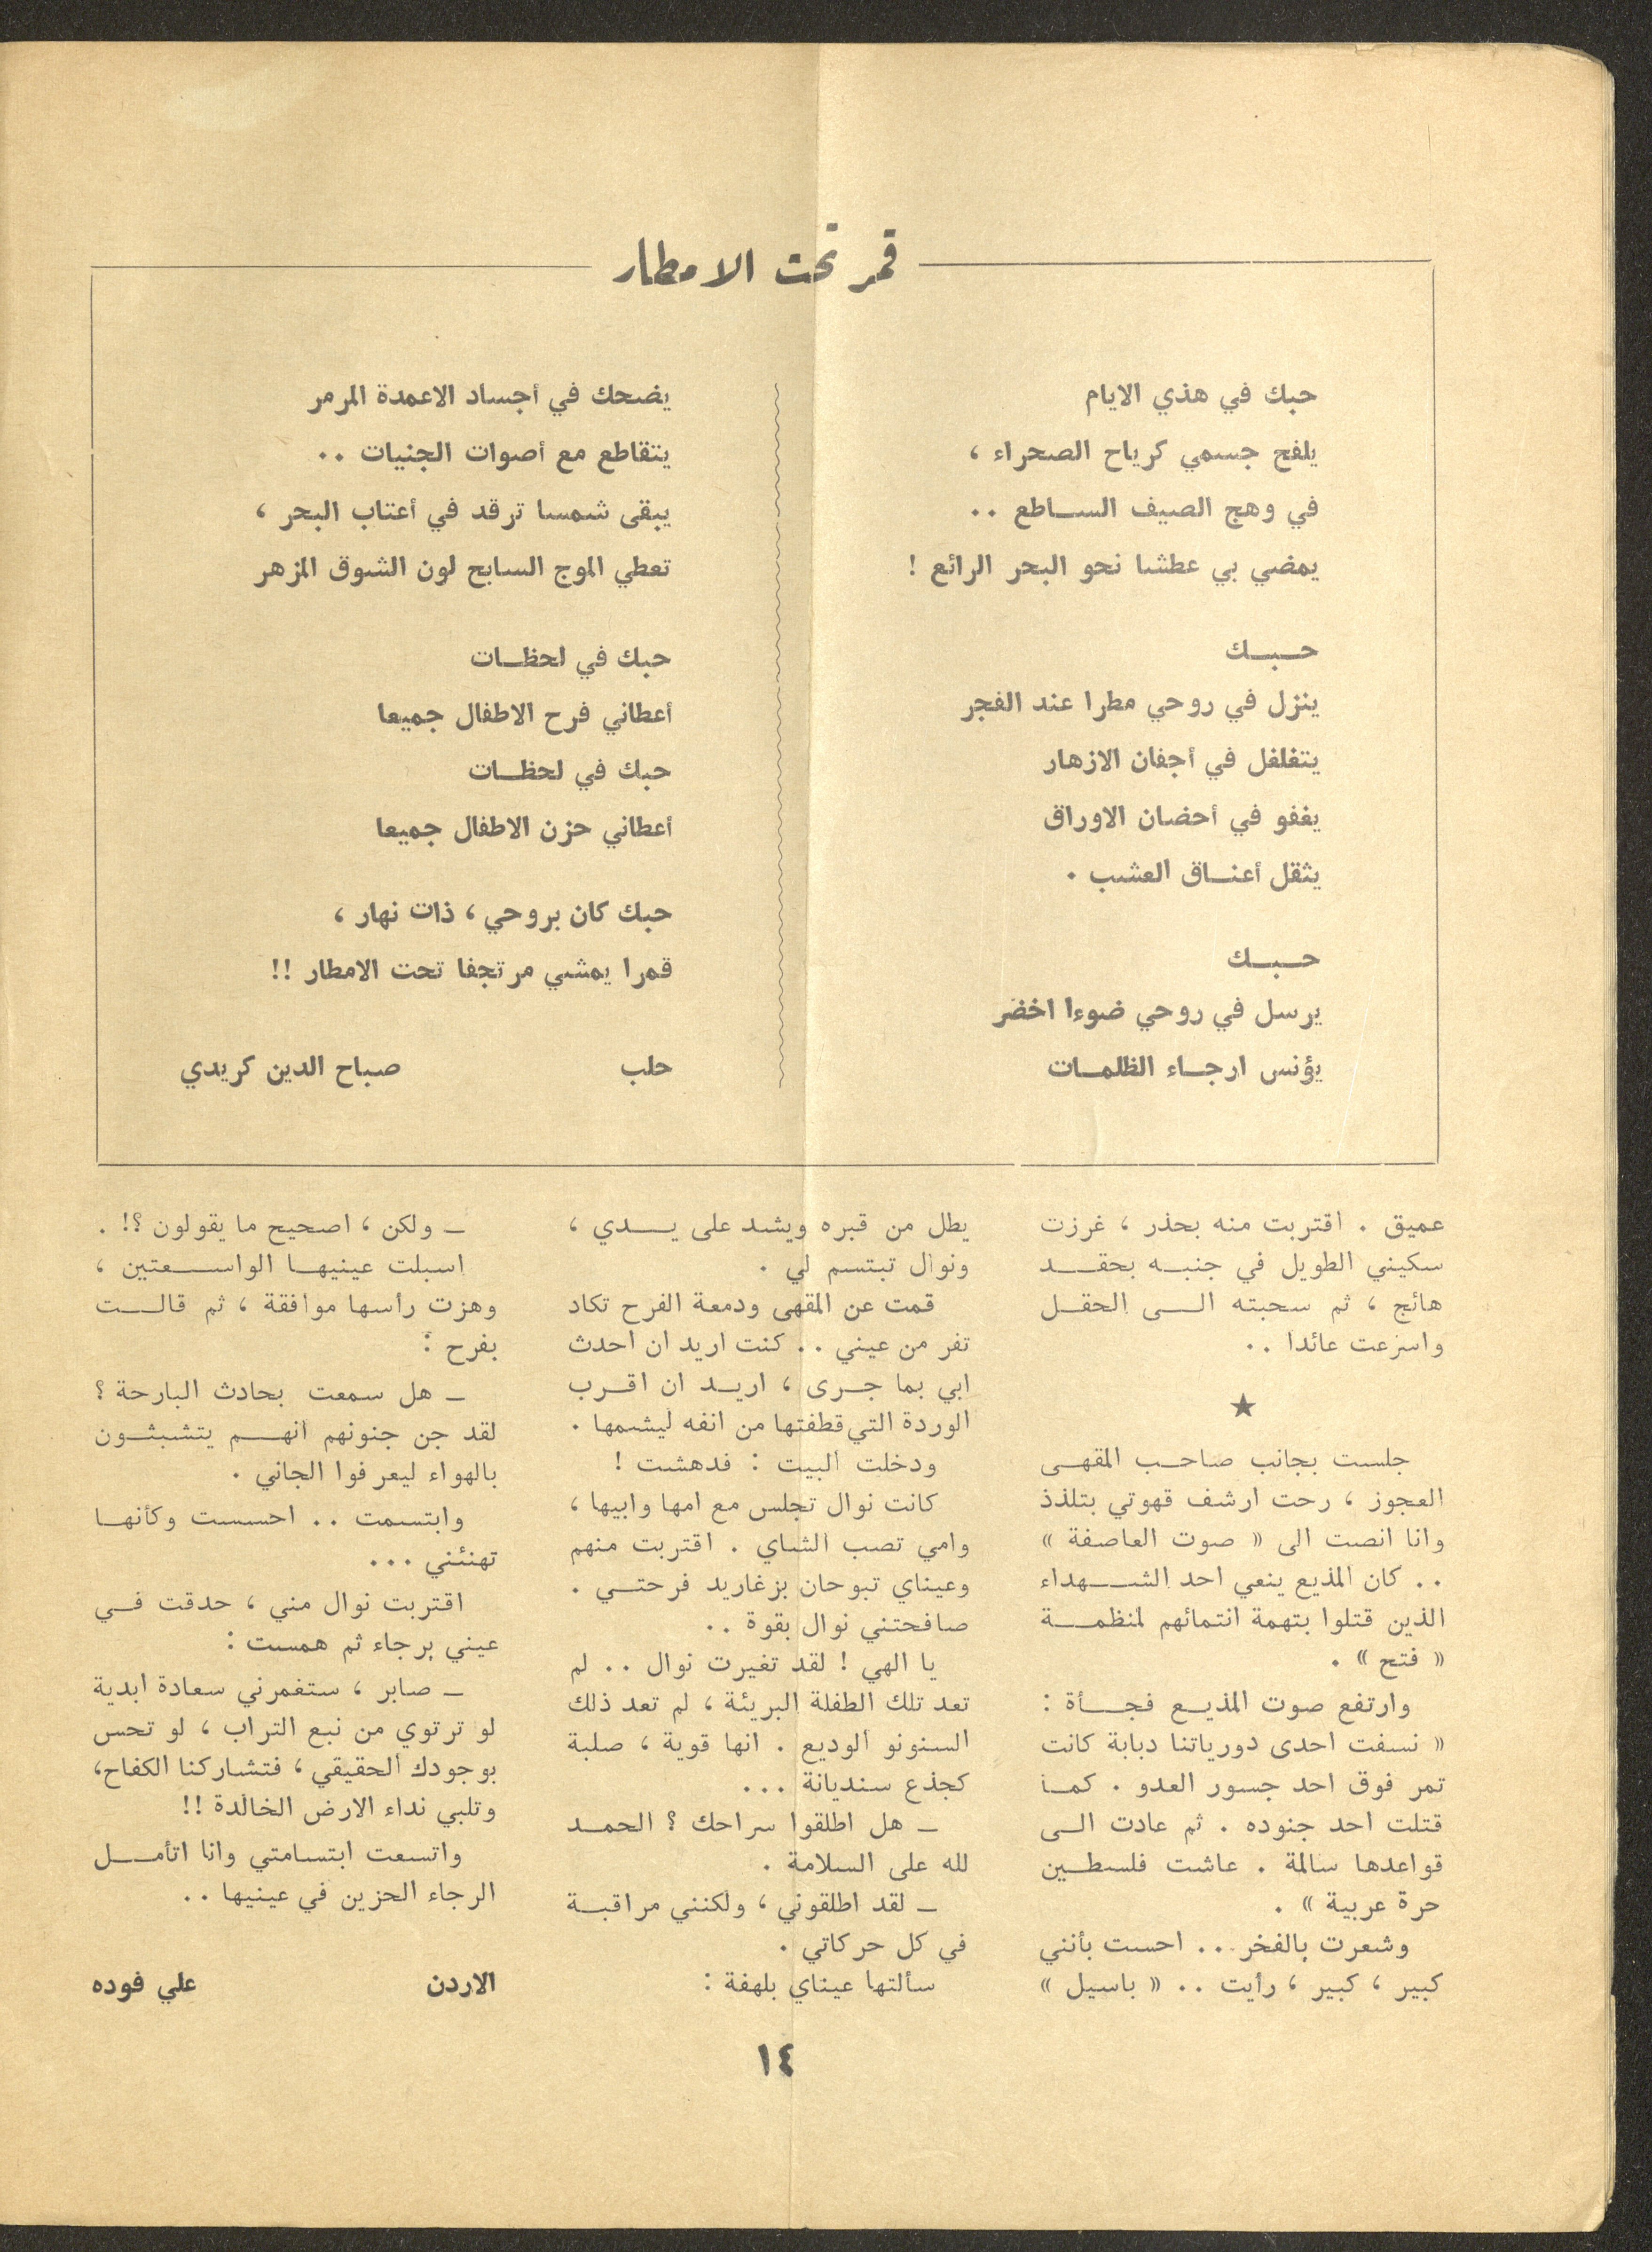 قمر تحت الامطار
حبك في هذي الايام
يلفح جسمي كرياح الصحراء ،
في وهج الصيف الساطع ..
يمضي بي عطشا نحو البحر الرائع !
حبك
ينزل في روحي مطرا عند الفجر
يتغلغل في أجفان الازهار
يغفو في أحضان الاوراق
يثقل أعناق العشب .
حبك
يرسل في روحي ضوءا اخضر
يؤنس ارجاء الظلمات
يضحك في أجساد الاعمدة المرمر
يتقاطع مع أصوات الجنيات ..
يبقى شمسا ترقد في أعتاب البحر ،
تعطي الموج السابح لون الشوق المزهر
حبك في لحظات
أعطاني فرح الاطفال جميعا
حبك في لحظات
أعطاني حزن الاطفال جميعا
حبك كان بروحي ، ذات نهار ،
قمرا يمشي مرتجفا تحت الامطار !!
حلب صباح الدين كريدي
عميق . اقتربت منه بحذر ، غرزت
سكيني الطويل في جنبه بحقد
هائج ، ثم سحبته الى الحقل
واسرعت عائدا ..
★
جلست بجانب صاحب المقهى
العجوز ، رحت ارشف قهوتي بتلذذ
وانا انصت الى « صوت العاصفة »
.. كان المذيع ينعي احد الشهداء
الذين قتلوا بتهمة انتمائهم لمنظمة
« فتح » .
وارتفع صوت المذيع فجأة :
« نسفت احدى دورياتنا دبابة كانت
تمر فوق احد جسور العدو . كما
قتلت احد جنوده . ثم عادت الى
قواعدها سالمة . عاشت فلسطين
حرة عربية » .
وشعرت بالفخر .. احست بأنني
كبير ، كبير ، رأيت .. « باسيل »
يطل من قبره ويشد على يدي ،
ونوال تبتسم لي .
قمت عن المقهى ودمعة الفرح تكاد
تفر من عيني .. كنت اريد ان احدث
ابي بما جرى ، اريد ان اقرب
الوردة التي قطفتها من انفه ليشمها .
ودخلت البيت : فدهشت !
كانت نوال تجلس مع امها وابيها ،
وامي تصب الشاي . اقتربت منهم
وعيناي تبوحان بزغاريد فرحتي .
صافحتني نوال بقوة ..
يا الهي ! لقد تغيرت نوال .. لم
تعد تلك الطفلة البريئة ، لم تعد ذلك
السنونو الوديع . انها قوية ، صلبة
كجذع سنديانة ...
ـ هل اطلقوا سراحك ؟ الحمد
لله على السلامة .
ـ لقد اطلقوني ، ولكنني مراقبة
في كل حركاتي .
سألتها عيناي بلهفة :
ـ ولكن ، اصحيح ما يقولون ؟! .
اسبلت عينيها الواسعتين ،
وهزت رأسها موافقة ، ثم قالت
بفرح :
ـ هل سمعت بحادث البارحة ؟
لقد جن جنونهم انهم يتشبثون
بالهواء ليعرفوا الجاني .
وابتسمت .. احسست وكأنها
تهنئني ...
اقتربت نوال مني ، حدقت في
عيني برجاء ثم همست :
ـ صابر ، ستغمرني سعادة ابدية
لو ترتوي من نبع التراب ، لو تحس
بوجودك الحقيقي ، فتشاركنا الكفاح،
وتلبي نداء الارض الخالدة !!
واتسعت ابتسامتي وانا اتأمل
الرجاء الحزين في عينيها ..
الاردن علي فوده
١٤